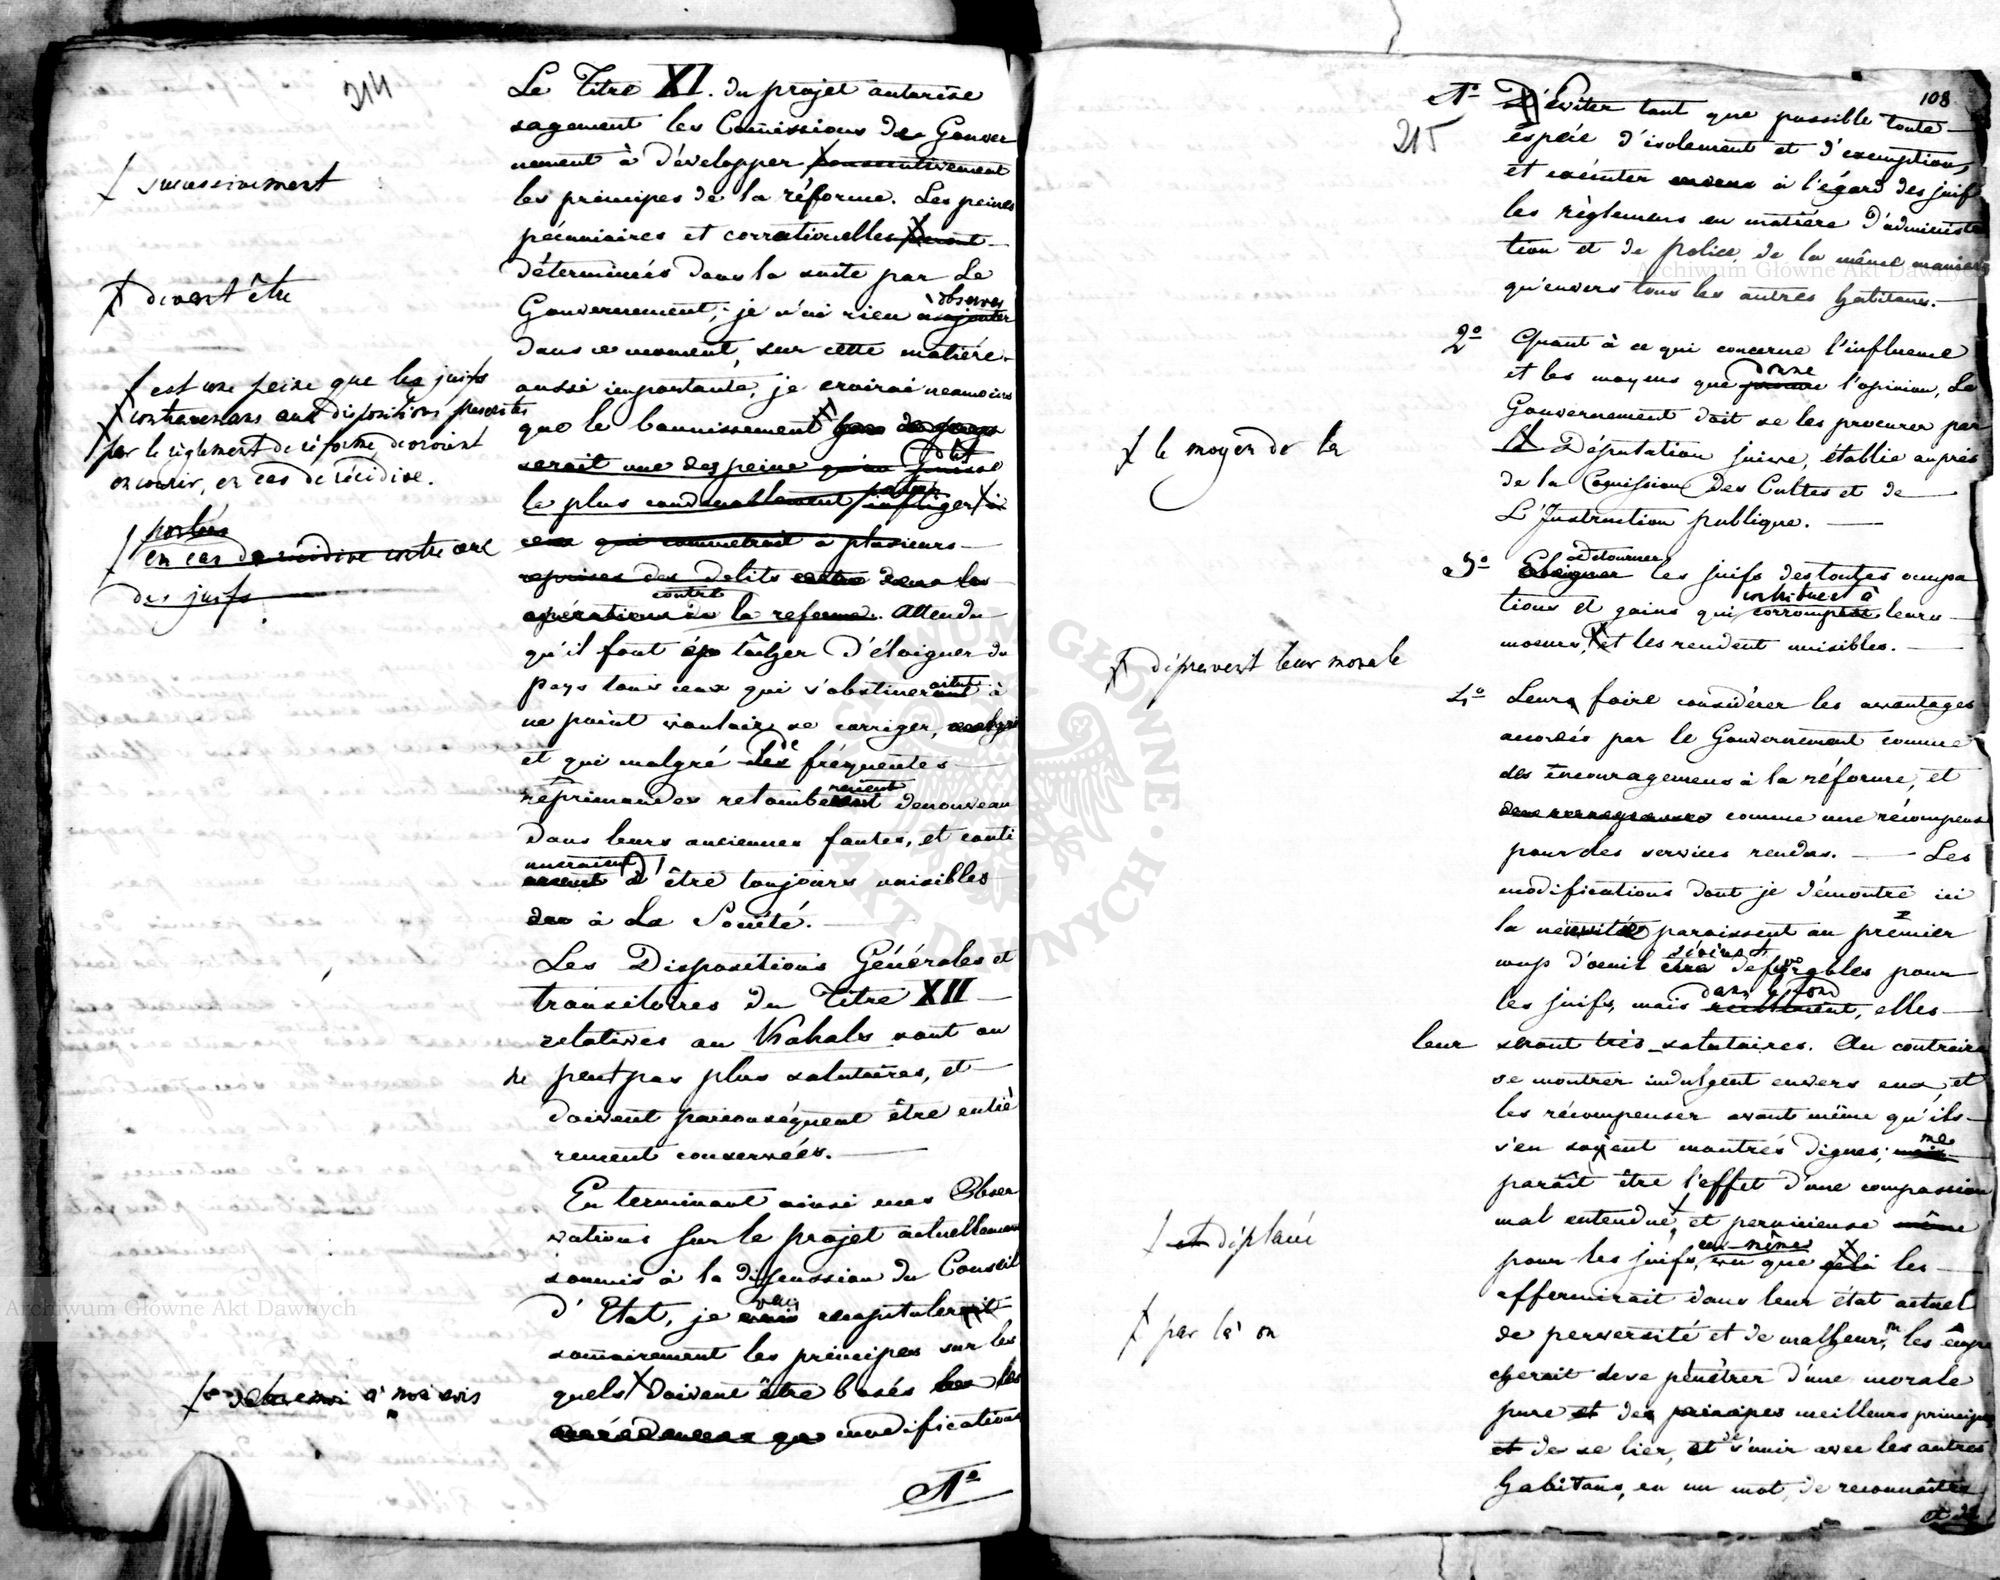 214
Le Titre XI. du projet autorise
sagement les Comissions de Gouver
nement à développer consecutivement
les principes de la réforme. Les peines
pécuniaires et correctionelles seront
déterminées dans la suite par Le
observer
Gouvernement, je n'ai rien à ajouter
dans ce moment, sur cette matière
aussi importante, je croirai neamoins
que le bannissement
serait une des peine qu'on puisse
le plus infliger à
ceux qui commetrait à plusieurs
reprises des delits dans les
contre
opérations de la reforme. Attendu
qu'il faut tâcher d'éloigner du
pays tous ceux qui s'obstineront à
ne point vouloir se corriger,
et qui malgré des fréquentes
réprimandes retomberaient denouveau
dans leurs anciennes fautes, et conti
nueraient
à être toujours nuisibles
à La Société.
Les Dispositions Générales et
transitoires du Titre XII
relatives au Kahals sont on
ne peut pas plus salutaires, et
doivent parconséquent être entiè
rement conservées.
En terminant ainsi mes Obser
vations sur le projet actuellement
soumis à la discussion du Conseil
d'Etat, je vais recapituler
somairement les principes sur les
quels doivent être basés les
modifications
1º
successivement
divent être
est une peine que les juifs
contrevenans aux dispositions prescrites
par le règlement de réforme, devroient
encourir, en cas de récidive.
portées
en cas de récidive contre
des juifs
à mon avis
108
215
1º D'Eviter tant que possible toute
espèce d'isolement et d'exemptions,
et exécuter envers à l'égard des juifs
les règlemens en matière d'administra
tion et de police, de la même manière
qu'envers tous les autres habitans.
2º Quant à ce qui concerne l'influence
donne
et les moyens que procure l'opinion, Le
Gouvernement doit se les procurer par
la Députation juive, établie auprès
de la Comission des Cultes et de
L'Instruction publique.
detourner
3º Eloigner les juifs des toutes occupa
contribuer à
tions et gains qui corrompent leurs
moeurs, et les rendent nuisibles.
4º Leurs faire considérer les avantages
accordés par le Gouvernement comme
des encouragemens à la réforme, et
comme une récompense
pour des services rendus. Les
modifications dont je démontre ici
la nécessité paraissent au premier
coup d'oeuil être défavorables pour
dans le fond
les juifs, mais reellement, elles
leur seront très salutaires. Au contraire
se montrer indulgent envers eux, et
les récompenser avant même qu'ils
s'en soyent montrés dignes, me
paraît être l'effet d'une compassion
mal entendue, et pernicieuse même
eux-mêmes
pour les juifs, vu que celà les
affermirait dans leur état actuel
de perversité et de malheur, les empe
cherait de se pénétrer d'une morale
pure et des principes meilleurs principes
et de se lier, et de s'unir avec les autres
habitans, en un mot, de reconnaître
et de
le moyen de la
dépravent leur morale
et déplacée
par là on
Archiwum Główne Akt Dawnych
Archiwum Główne Akt Dawnych
ARCHIWUM GŁÓWNE AKT DAWNYCH